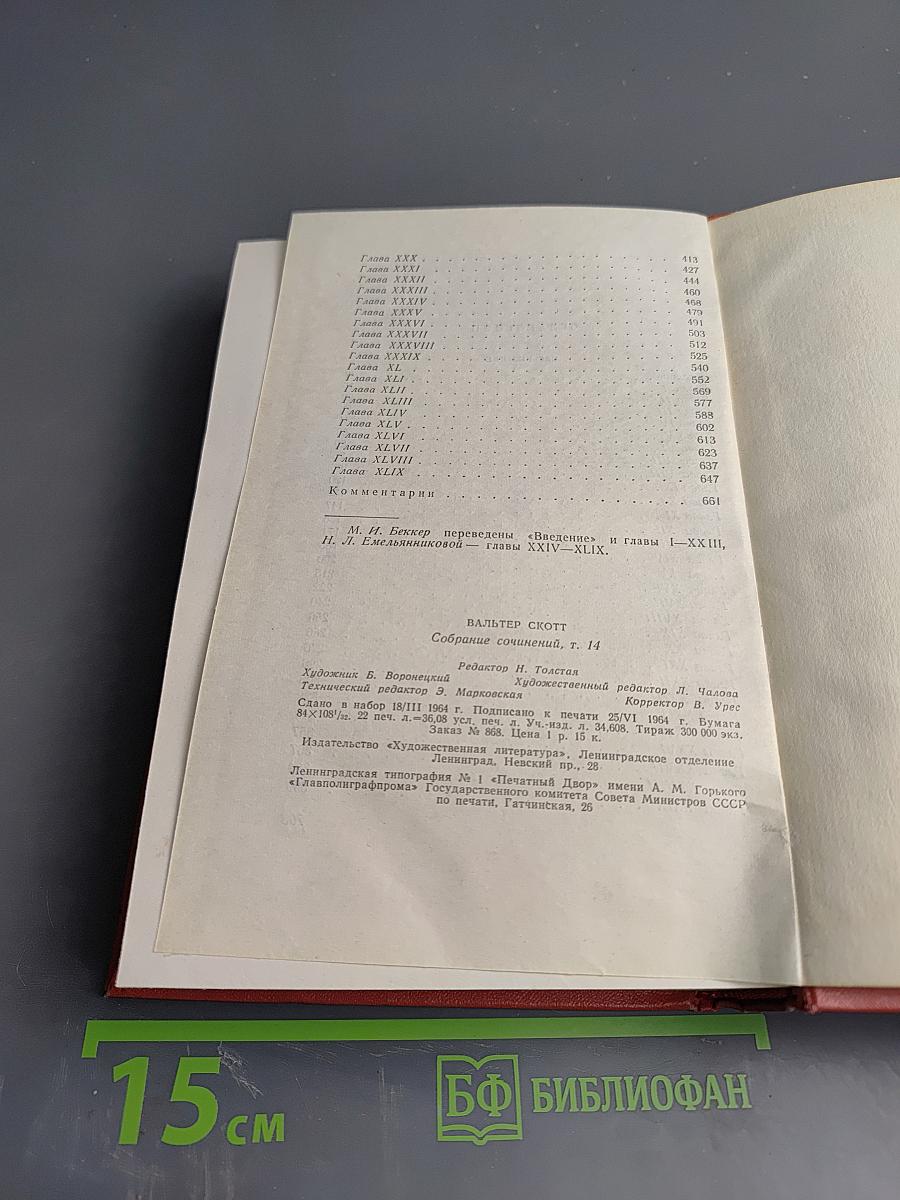 Глава XXX . . . . . . . . . . . . . . . 413
Глава XXXI . . . . . . . . . . . . . . . 427
Глава XXXII . . . . . . . . . . . . . . . 444
Глава XXXIII . . . . . . . . . . . . . . . 460
Глава XXXIV . . . . . . . . . . . . . . . 468
Глава XXXV . . . . . . . . . . . . . . . 479
Глава XXXVI . . . . . . . . . . . . . . . 491
Глава XXXVII . . . . . . . . . . . . . . . 503
Глава XXXVIII . . . . . . . . . . . . . . . 512
Глава XXXIX . . . . . . . . . . . . . . . 525
Глава XL . . . . . . . . . . . . . . . 540
Глава XLI . . . . . . . . . . . . . . . 552
Глава XLII . . . . . . . . . . . . . . . 569
Глава XLIII . . . . . . . . . . . . . . . 577
Глава XLIV . . . . . . . . . . . . . . . 588
Глава XLV . . . . . . . . . . . . . . . 602
Глава XLVI . . . . . . . . . . . . . . . 613
Глава XLVII . . . . . . . . . . . . . . . 623
Глава XLVIII . . . . . . . . . . . . . . . 637
Глава XLIX . . . . . . . . . . . . . . . 647
Комментарии . . . . . . . . . . . . . . . 661
М. И. Беккер переведены «Введение» и главы I—XXIII,
Н. Л. Емельянниковой — главы XXIV—XLIX.
ВАЛЬТЕР СКОТТ
Собрание сочинений, т. 14
Редактор Н. Толстая
Художник Б. Воронецкий Художественный редактор Л. Чалова
Технический редактор Э. Марковская Корректор В. Урес
Сдано в набор 18/III 1964 г. Подписано к печати 25/VI 1964 г. Бумага
84×108¹/₃₂. 22 печ. л.=36,08 усл. печ. л. Уч.-изд. л. 34,608. Тираж 300 000 экз.
Заказ № 868. Цена 1 р. 15 к.
Издательство «Художественная литература», Ленинградское отделение
Ленинград, Невский пр., 28
Ленинградская типография № 1 «Печатный Двор» имени А. М. Горького
«Главполиграфпрома» Государственного комитета Совета Министров СССР
по печати, Гатчинская, 26
15 см
БФ БИБЛИОФАН